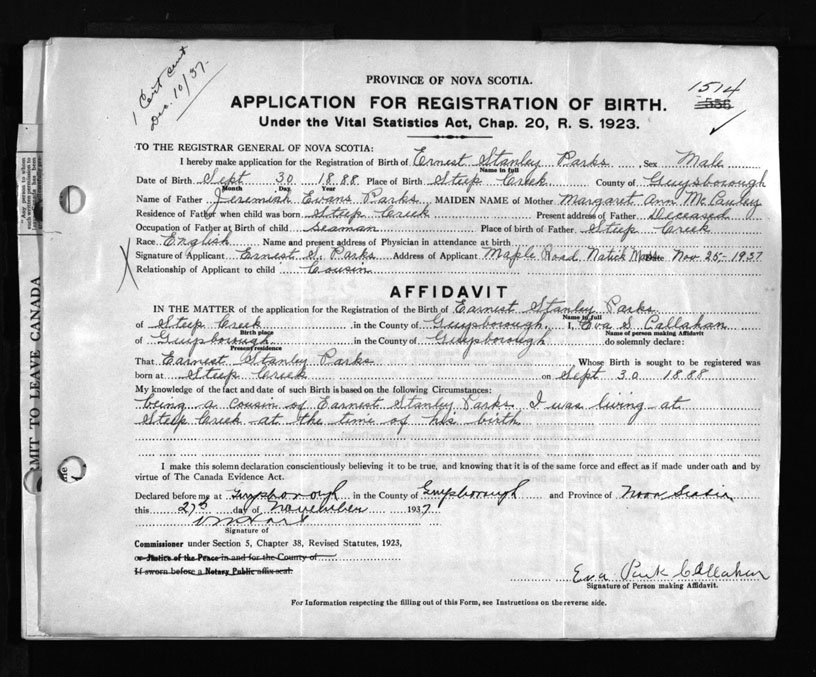 1 Cert sent
Dec. 10/37.
PROVINCE OF NOVA SCOTIA.
1514
556
APPLICATION FOR REGISTRATION OF BIRTH.
Under the Vital Statistics Act, Chap. 20, R. S. 1923.
TO THE REGISTRAR GENERAL OF NOVA SCOTIA:
I hereby make application for the Registration of Birth of Ernest Stanley Parks Sex Male
Name in full
Date of Birth Sept 30 1888 Place of Birth Steep Creek County of Guysborough
Month Day Year
Name of Father Jeremiah Evans Parks MAIDEN NAME of Mother Margaret Ann McCauley
Residence of Father when child was born Steep Creek Present address of Father Deceased
Occupation of Father at Birth of child Seaman Place of birth of Father Steep Creek
Race English Name and present address of Physician in attendance at birth
Signature of Applicant Ernest S. Parks Address of Applicant Maple Road Natick Mass Date Nov 25-1937
Relationship of Applicant to child Cousin
AFFIDAVIT
IN THE MATTER of the application for the Registration of the Birth of Earnest Stanley Parks
Name in full
of Steep Creek in the County of Guysborough, I, Eva S Callahan
Birth place Name of person making Affidavit
of Guysborough in the County of Guysborough do solemnly declare:
Present residence
That Earnest Stanley Parks Whose Birth is sought to be registered was
born at Steep Creek on Sept 30 1888
My knowledge of the fact and date of such Birth is based on the following Circumstances:
being a cousin of Earnest Stanley Parks I was living at
Steep Creek at the time of his birth
I make this solemn declaration conscientiously believing it to be true, and knowing that it is of the same force and effect as if made under oath and by
virtue of The Canada Evidence Act.
Declared before me at Guysborough in the County of Guysborough and Province of Nova Scotia
this 27th day of November 1937
Signature of
Commissioner under Section 5, Chapter 38, Revised Statutes, 1923,
or Justice of the Peace in and for the County of
If sworn before a Notary Public affix seal.
Eva Park Callahan
Signature of Person making Affidavit.
For Information respecting the filling out of this Form, see Instructions on the reverse side.
"Any person to whom
MIT TO LEAVE CANADA